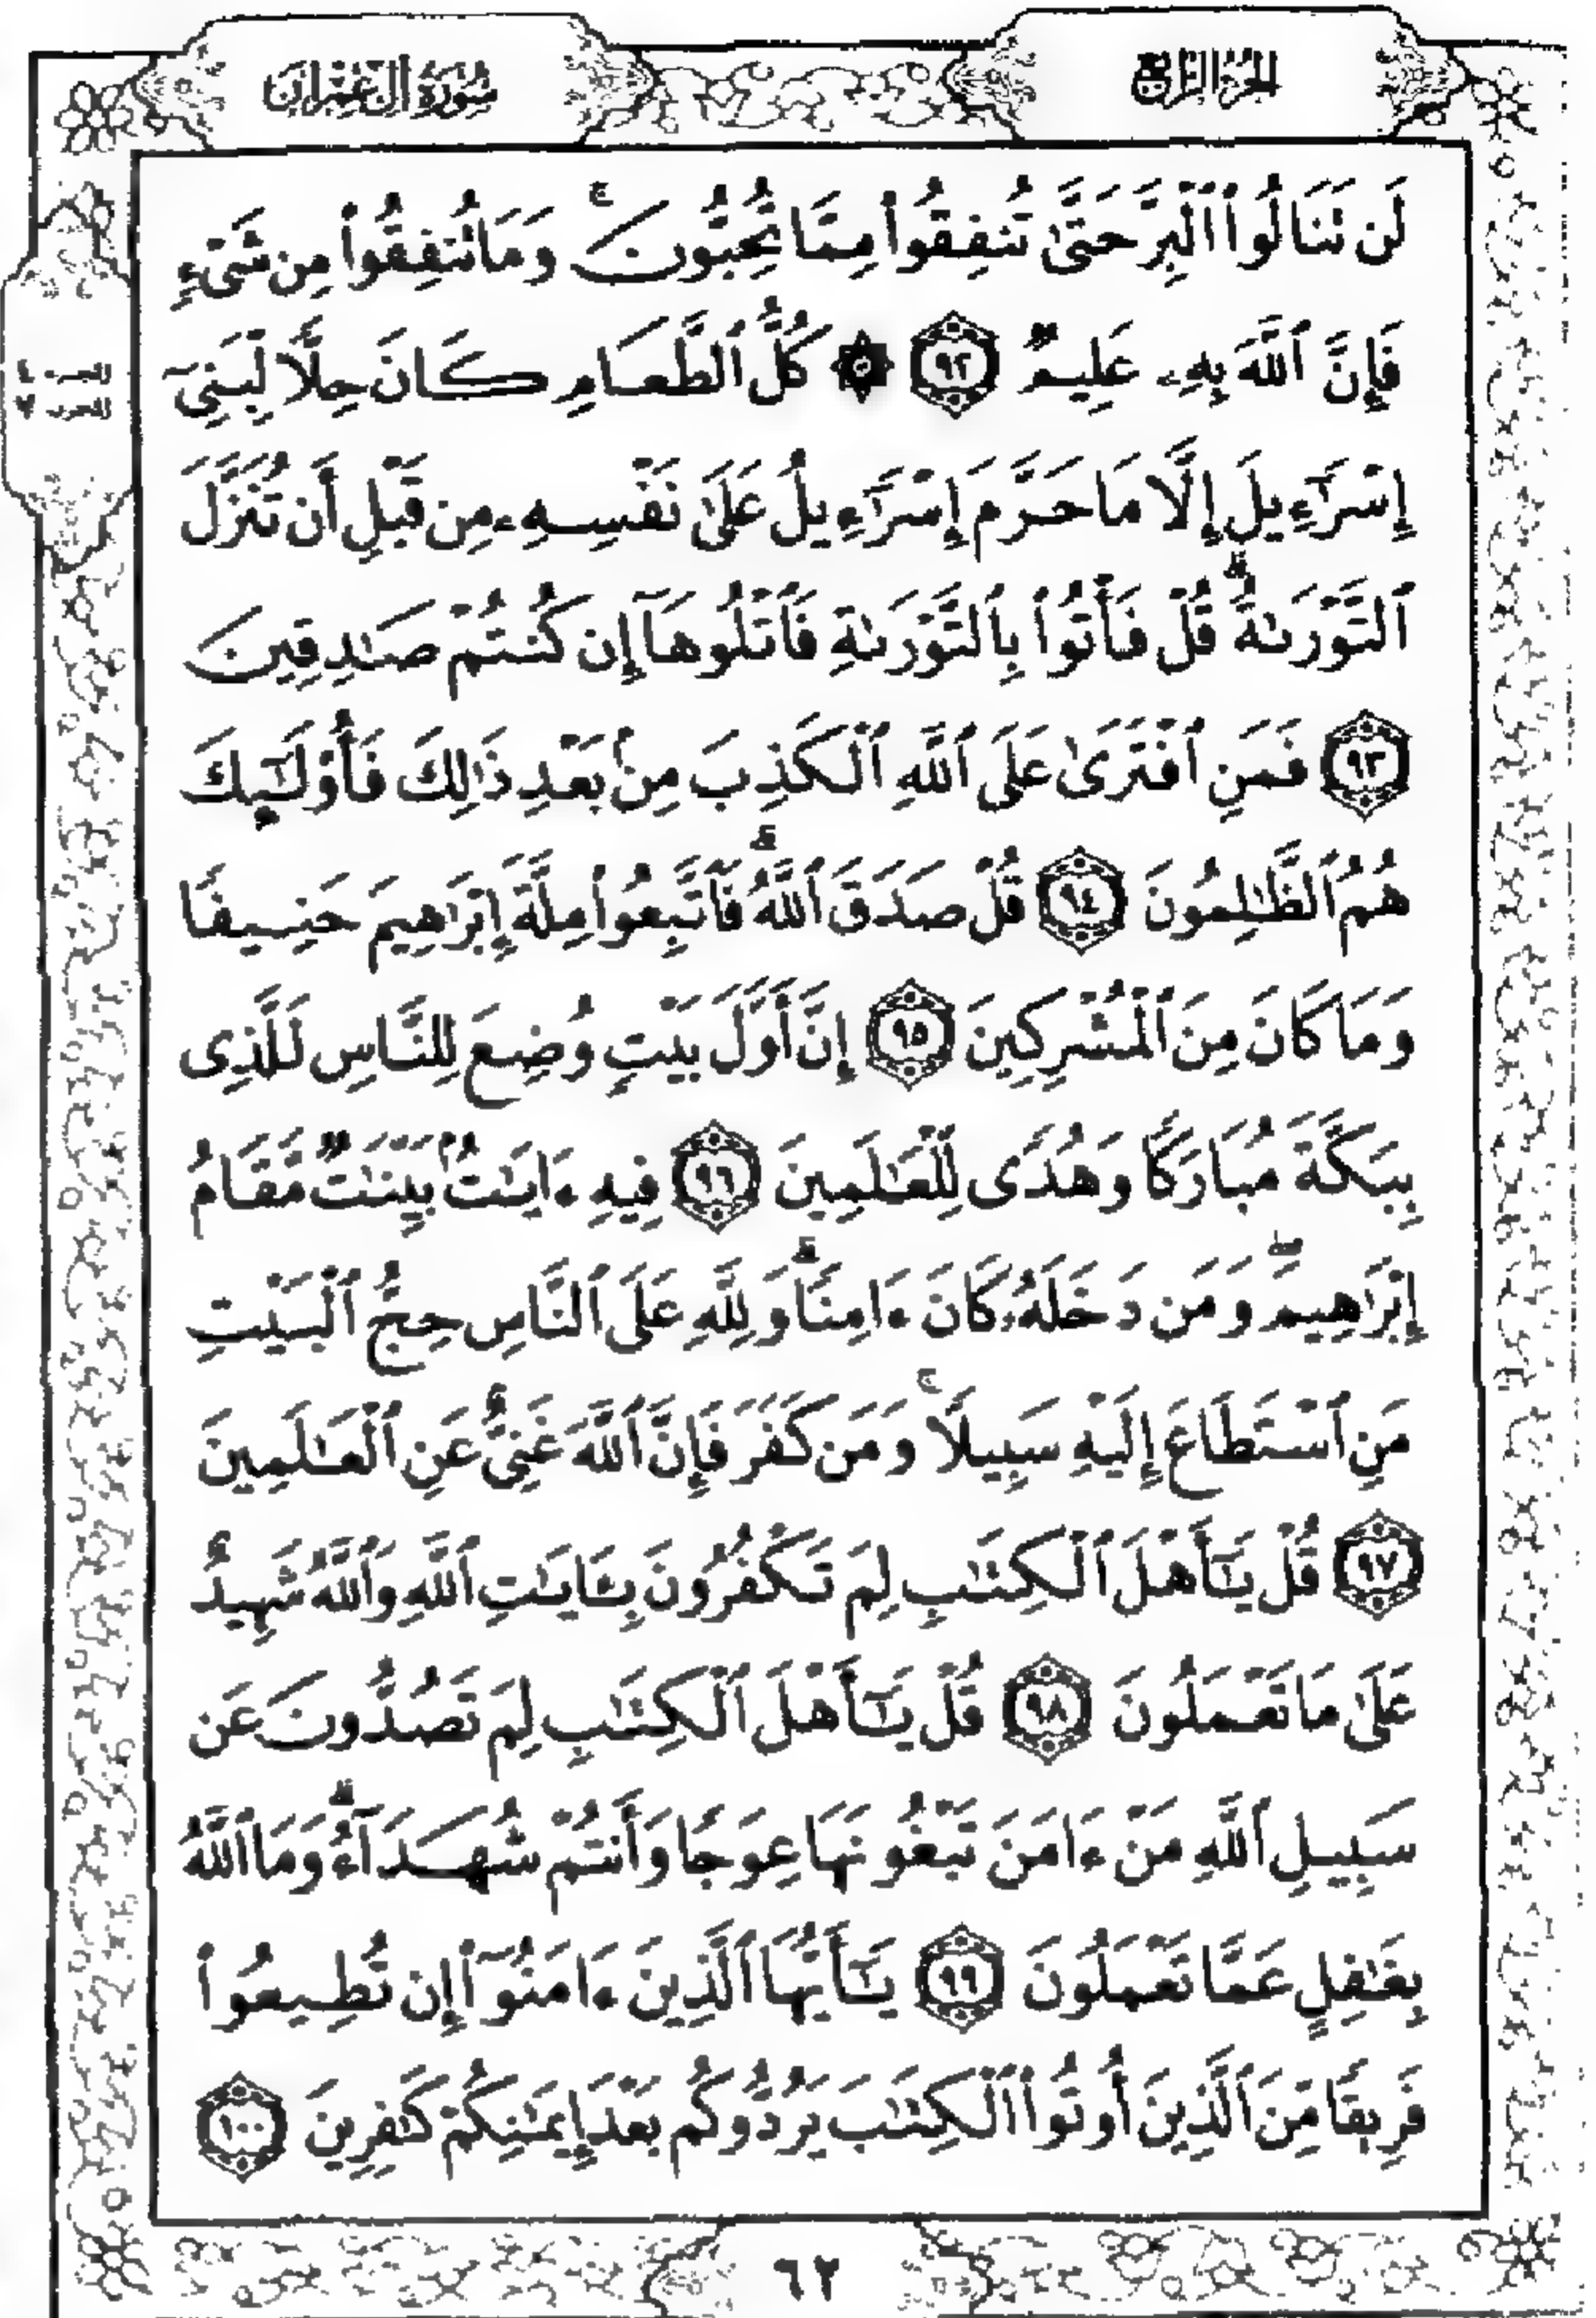 الجزء الرابع
سورة آل عمران
لَن تَنَالُوا۟ ٱلْبِرَّ حَتَّىٰ تُنفِقُوا۟ مِمَّا تُحِبُّونَ ۚ وَمَا تُنفِقُوا۟ مِن شَىْءٍ
فَإِنَّ ٱللَّهَ بِهِۦ عَلِيمٌ ٩٢ ۞ كُلُّ ٱلطَّعَامِ كَانَ حِلًّا لِّبَنِىٓ
إِسْرَٰٓءِيلَ إِلَّا مَا حَرَّمَ إِسْرَٰٓءِيلُ عَلَىٰ نَفْسِهِۦ مِن قَبْلِ أَن تُنَزَّلَ
ٱلتَّوْرَىٰةُ ۗ قُلْ فَأْتُوا۟ بِٱلتَّوْرَىٰةِ فَٱتْلُوهَآ إِن كُنتُمْ صَٰدِقِينَ
٩٣ فَمَنِ ٱفْتَرَىٰ عَلَى ٱللَّهِ ٱلْكَذِبَ مِنۢ بَعْدِ ذَٰلِكَ فَأُو۟لَٰٓئِكَ
هُمُ ٱلظَّٰلِمُونَ ٩٤ قُلْ صَدَقَ ٱللَّهُ ۗ فَٱتَّبِعُوا۟ مِلَّةَ إِبْرَٰهِيمَ حَنِيفًا
وَمَا كَانَ مِنَ ٱلْمُشْرِكِينَ ٩٥ إِنَّ أَوَّلَ بَيْتٍ وُضِعَ لِلنَّاسِ لَلَّذِى
بِبَكَّةَ مُبَارَكًا وَهُدًى لِّلْعَٰلَمِينَ ٩٦ فِيهِ ءَايَٰتٌۢ بَيِّنَٰتٌ مَّقَامُ
إِبْرَٰهِيمَ ۖ وَمَن دَخَلَهُۥ كَانَ ءَامِنًا ۗ وَلِلَّهِ عَلَى ٱلنَّاسِ حِجُّ ٱلْبَيْتِ
مَنِ ٱسْتَطَاعَ إِلَيْهِ سَبِيلًا ۚ وَمَن كَفَرَ فَإِنَّ ٱللَّهَ غَنِىٌّ عَنِ ٱلْعَٰلَمِينَ
٩٧ قُلْ يَٰٓأَهْلَ ٱلْكِتَٰبِ لِمَ تَكْفُرُونَ بِـَٔايَٰتِ ٱللَّهِ وَٱللَّهُ شَهِيدٌ
عَلَىٰ مَا تَعْمَلُونَ ٩٨ قُلْ يَٰٓأَهْلَ ٱلْكِتَٰبِ لِمَ تَصُدُّونَ عَن
سَبِيلِ ٱللَّهِ مَنْ ءَامَنَ تَبْغُونَهَا عِوَجًا وَأَنتُمْ شُهَدَآءُ ۗ وَمَا ٱللَّهُ
بِغَٰفِلٍ عَمَّا تَعْمَلُونَ ٩٩ يَٰٓأَيُّهَا ٱلَّذِينَ ءَامَنُوٓا۟ إِن تُطِيعُوا۟
فَرِيقًا مِّنَ ٱلَّذِينَ أُوتُوا۟ ٱلْكِتَٰبَ يَرُدُّوكُم بَعْدَ إِيمَٰنِكُمْ كَٰفِرِينَ ١٠٠
٦٢